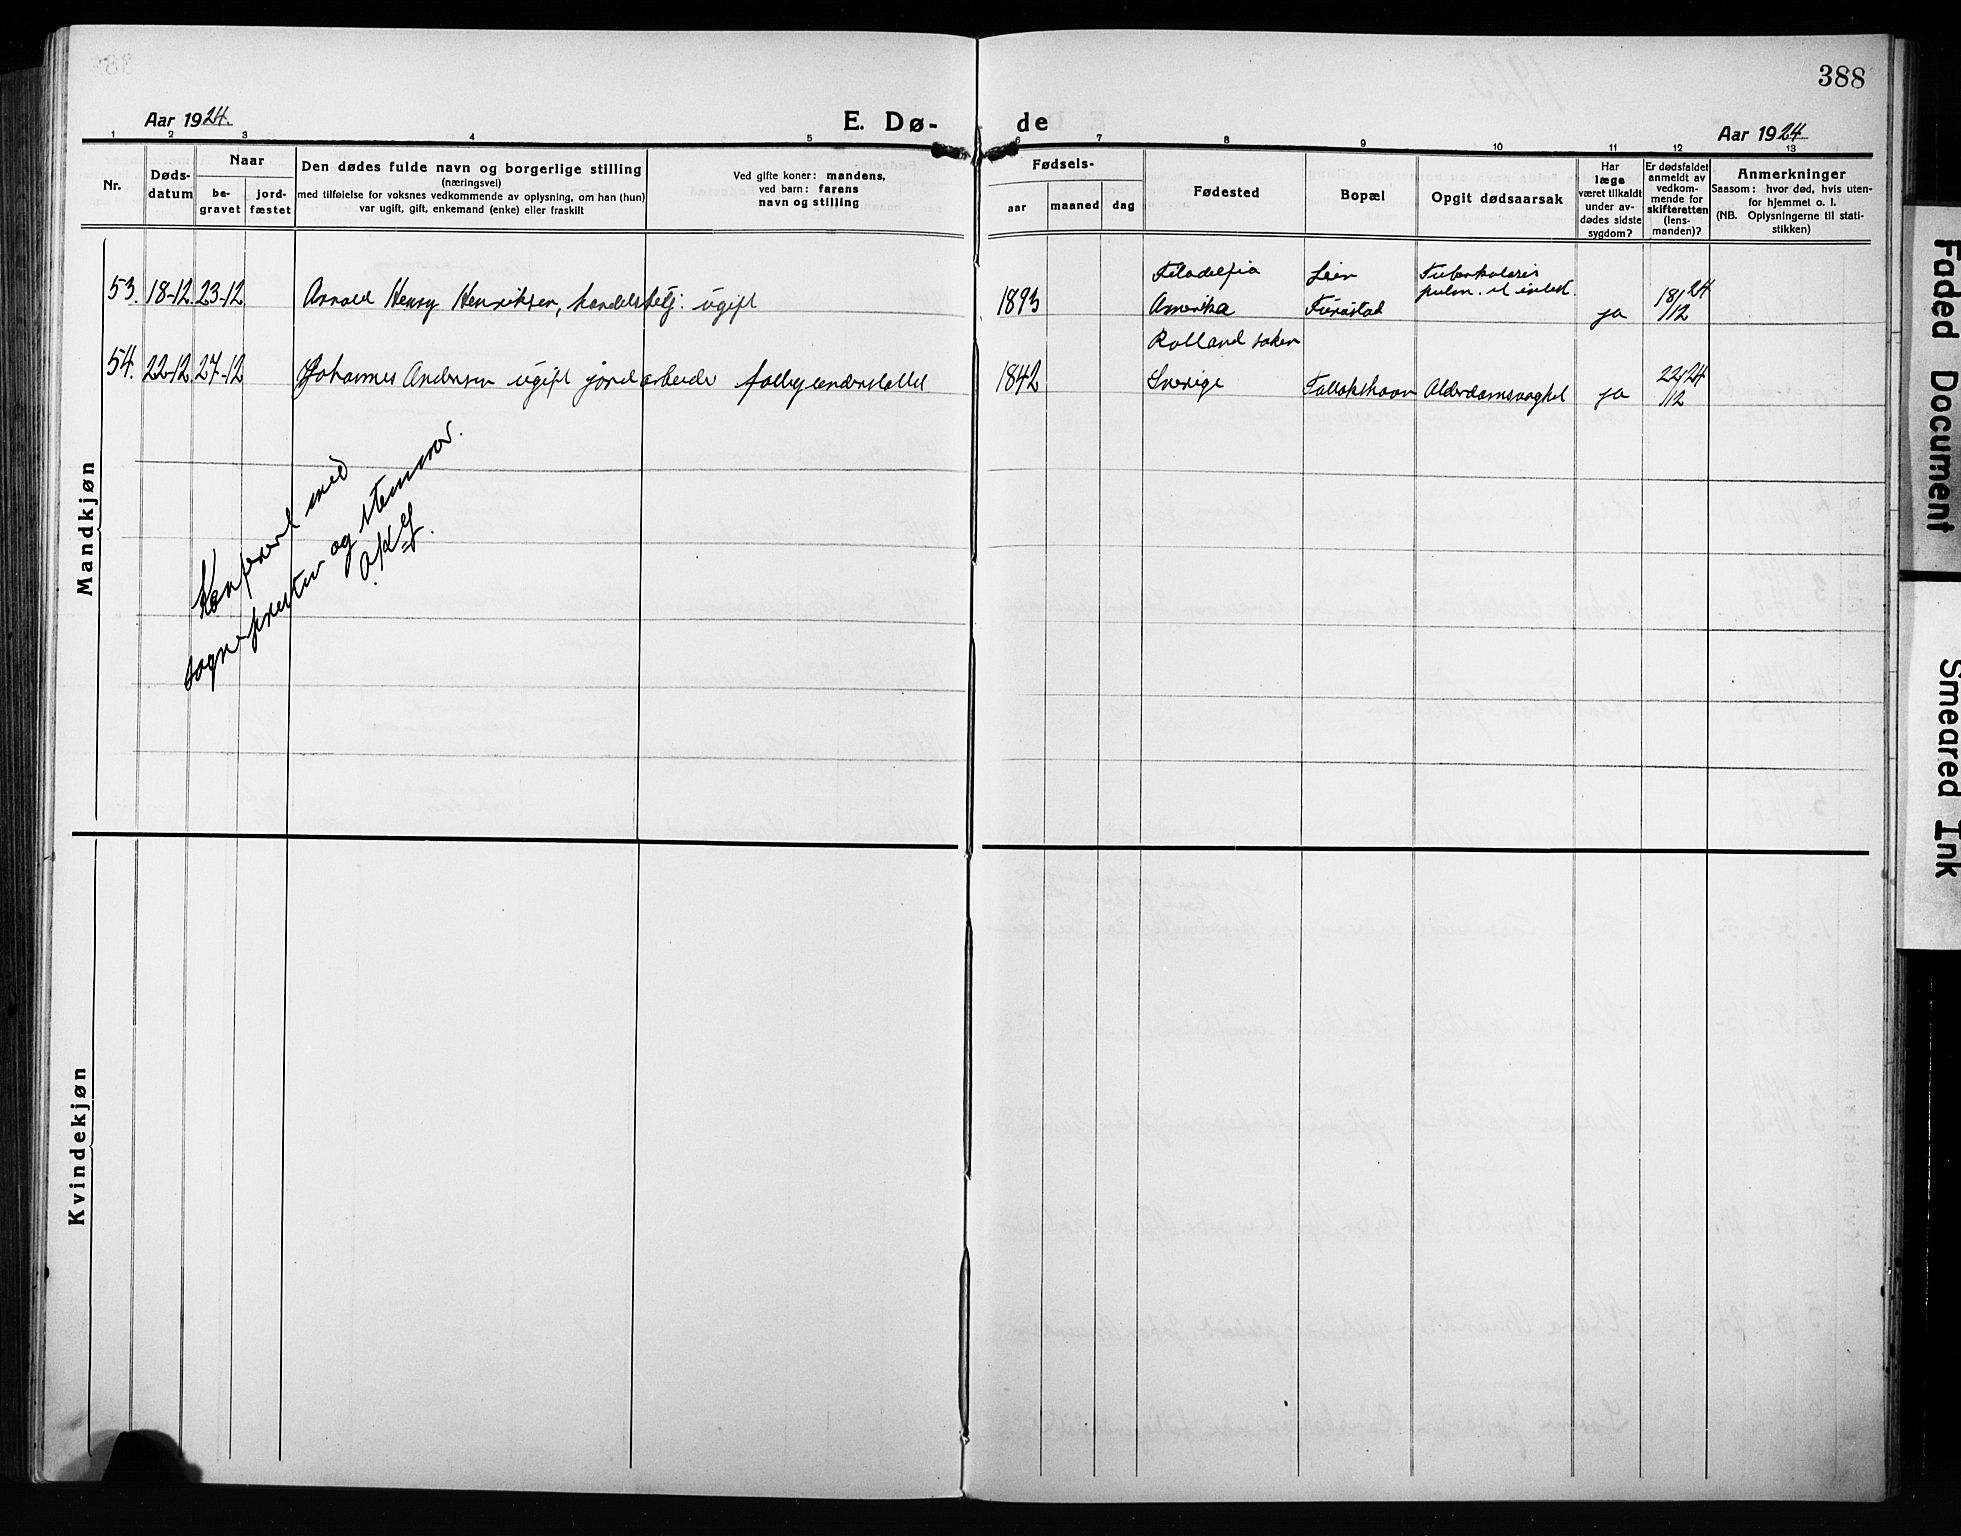 388
Aar 1924.
E. Dø-
de
Aar 1924
1 2 3 4 5 6 7 8 9 10 11 12 13
Nr.
Døds-
datum
Naar
be-
gravet
jord-
fæstet
Den dødes fulde navn og borgerlige stilling
(næringsvei)
med tilføielse for voksnes vedkommende av oplysning, om han (hun)
var ugift, gift, enkemand (enke) eller fraskilt
Ved gifte koner: mandens,
ved barn: farens
navn og stilling
Fødsels-
aar
maaned
dag
Fødested
Bopæl
Opgit dødsaarsak
Har
læge
været tilkaldt
under av-
dødes sidste
sygdom?
Er dødsfaldet
anmeldt av
vedkom-
mende for
skifteretten
(lens-
manden)?
Anmerkninger
Saasom: hvor død, hvis uten-
for hjemmet o. l.
(NB. Oplysningerne til stati-
stikken)
Mandkjøn
53. 18-12 23-12 Arnold Henry Henriksen, handelsbetj: ugift 1893 Filadelfia
Amerika Lien
Tuberkulosis
pulm. et intest. ja 18/12 24
54. 22-12 27-12 Johannes Andersen ugift jordarbeide 1842
Sverige Alderdomsvaghet ja 22/12 24
Konferert med
sogneprester og stemmer.
Kvindekjøn
Faded Document
Smeared Ink